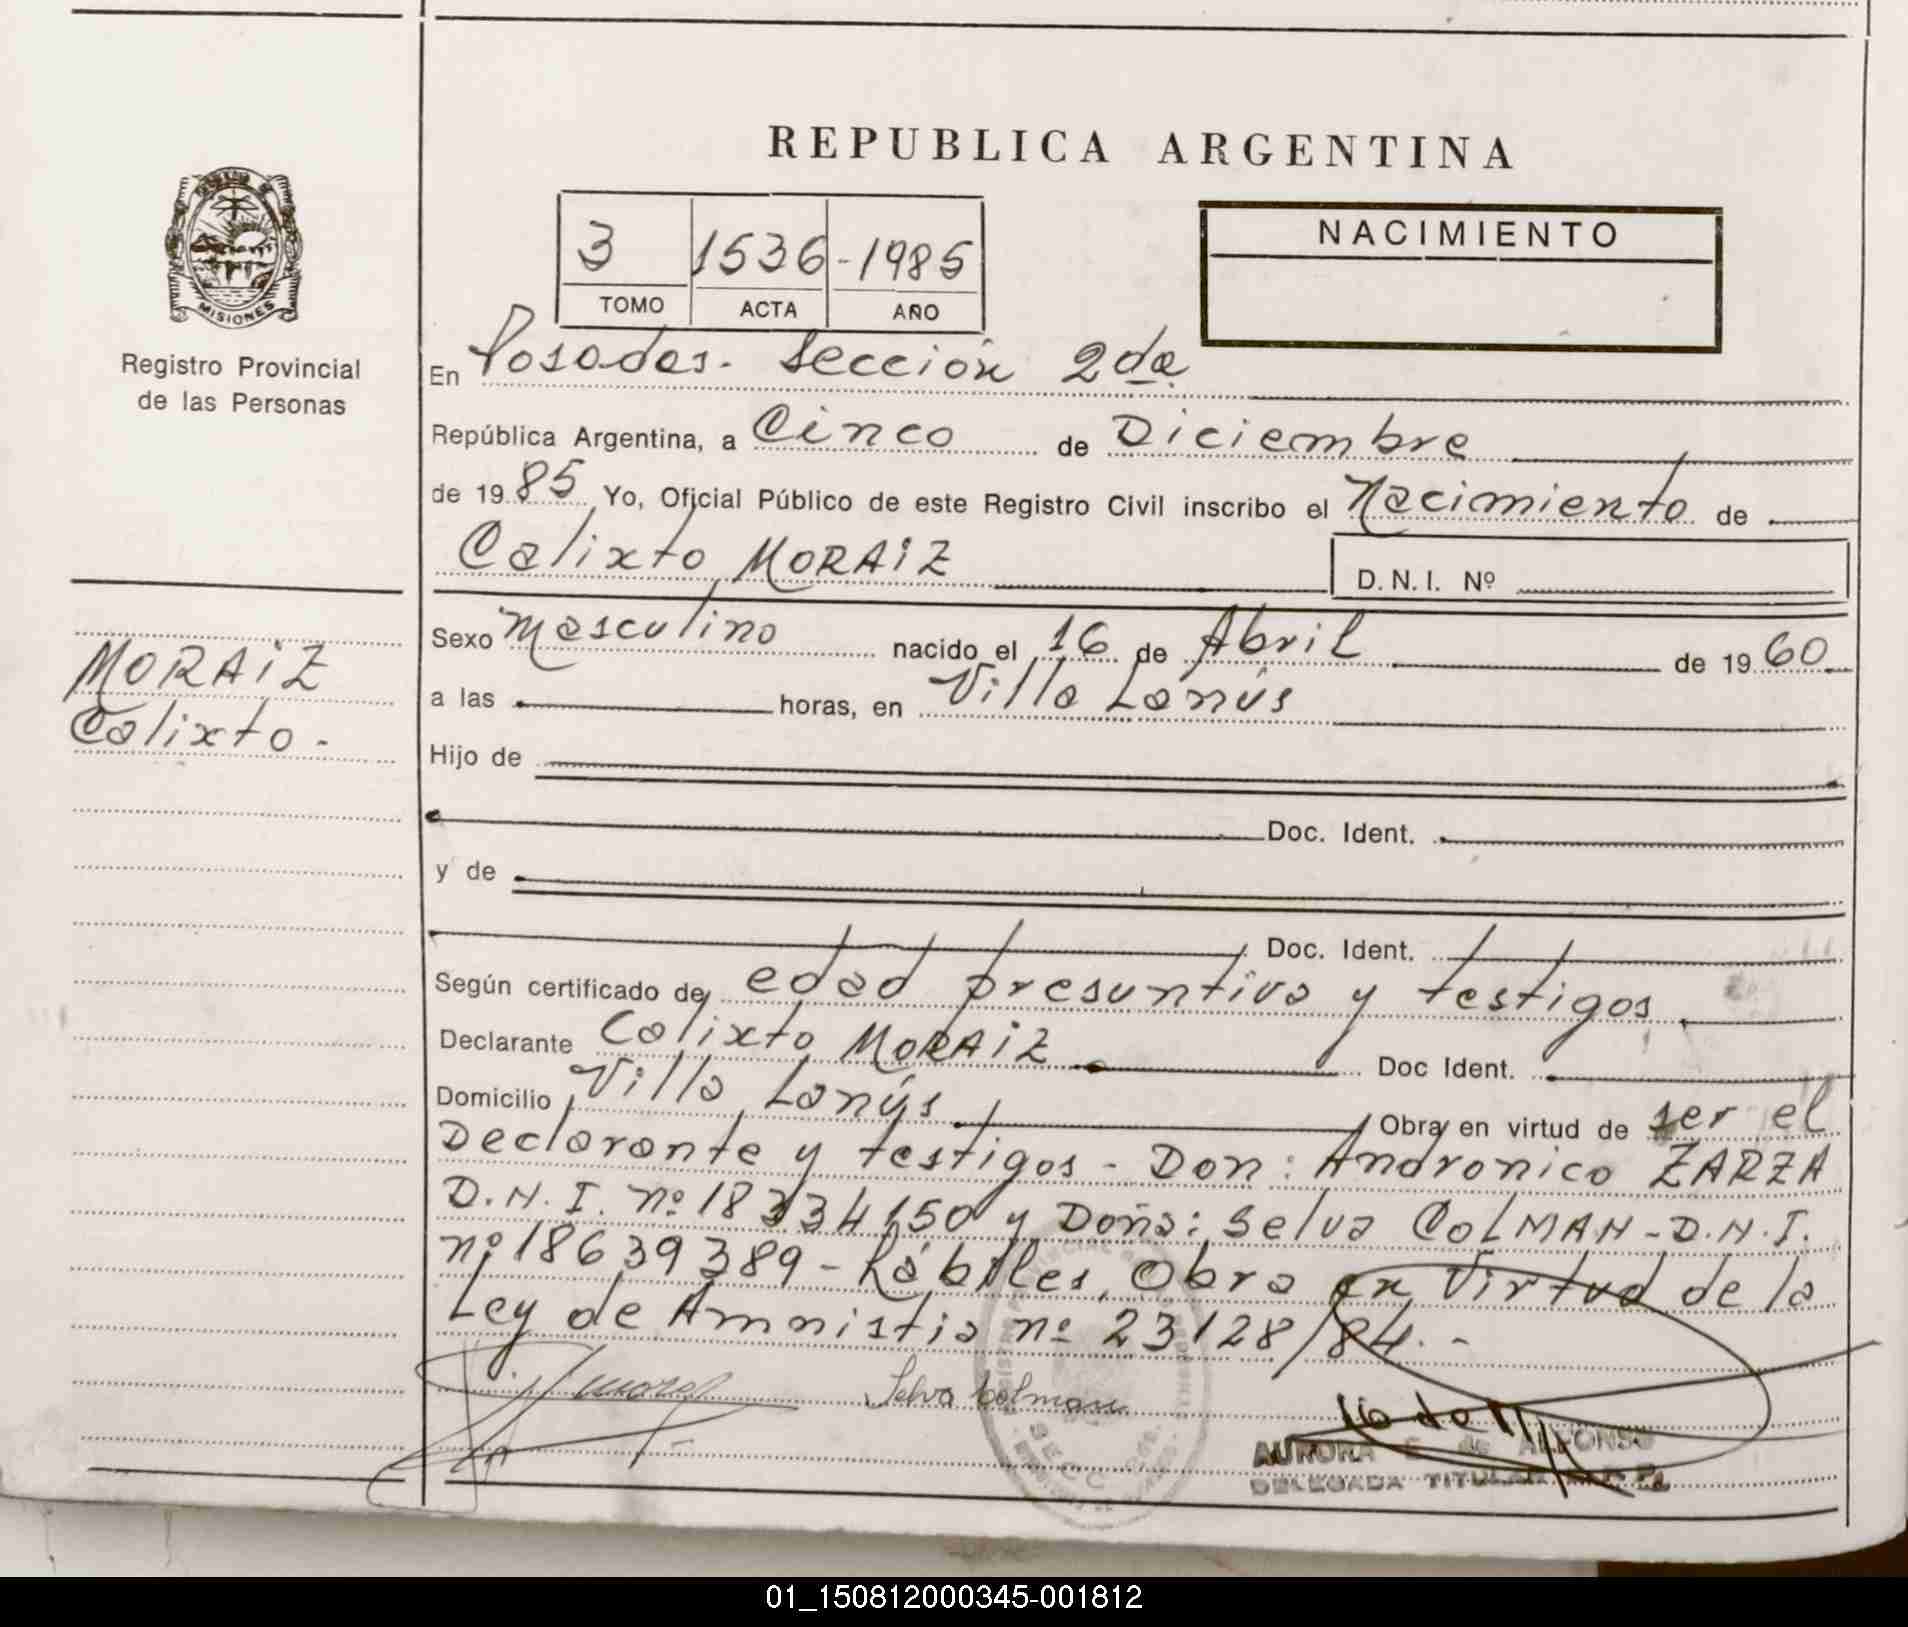 REPUBLICA ARGENTINA
MISIONES
Registro Provincial
de las Personas
3 1536 -1985
TOMO ACTA AÑO
NACIMIENTO
En Posadas. Sección 2da
República Argentina, a Cinco de Diciembre
de 19 85 Yo, Oficial Público de este Registro Civil inscribo el Nacimiento de
Calixto MORAiZ
D.N.I. Nº
MORAiZ
Calixto -
Sexo Masculino nacido el 16 de Abril de 19 60
a las horas, en Villa Lanús
Hijo de
Doc. Ident.
y de
Doc. Ident.
Según certificado de edad presuntiva y testigos
Declarante Calixto MORAiZ Doc Ident.
Domicilio Villa Lanús Obra en virtud de ser el
Declarante y testigos - Don: Andronico ZARZA
D.N.I. nº 18334150 y Doña: Selva COLMAN - D.N.I.
nº 18639389 - hábiles, Obra en Virtud de la
Ley de Amnistia nº 23128/84. -
Selva Colman
AURORA E. de ALFONSO
DELEGADA TITULAR
SECC
01_150812000345-001812